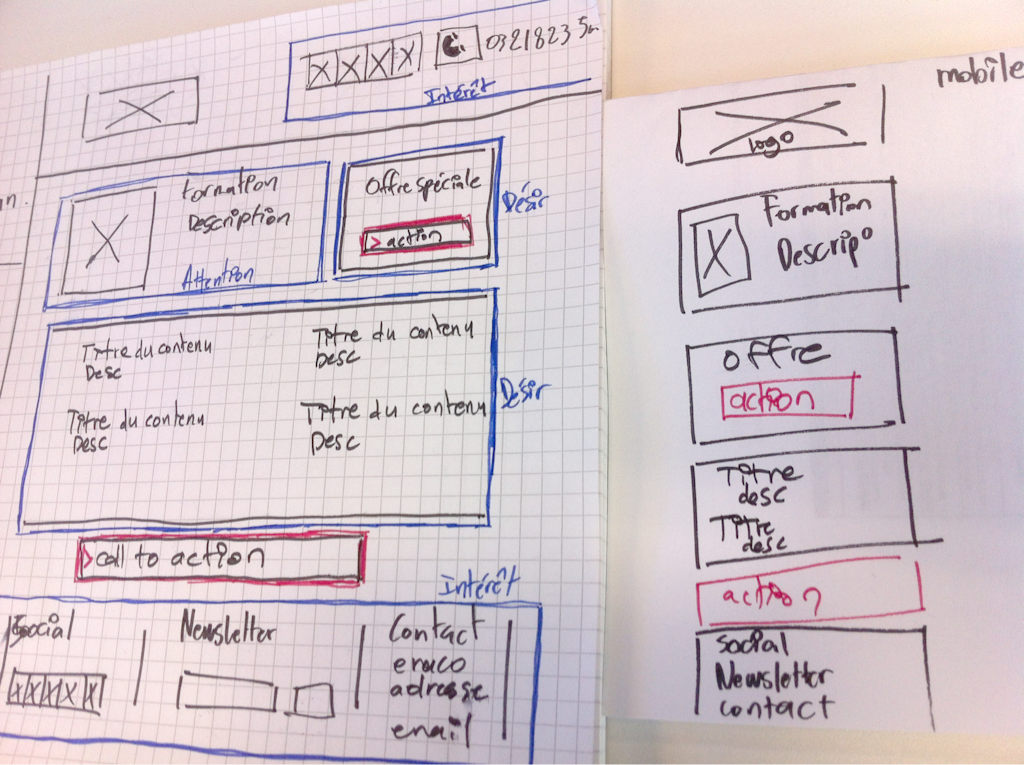 032182 35
Intérêt
Formation
Description
Attention
Offre spéciale
> action
Désir
Titre du contenu
Desc
Titre du contenu
Desc
Titre du contenu
Desc
Titre du contenu
Desc
Désir
> call to action
Intérêt
Social
Newsletter
Contact
eraco
adresse
email
mobile
logo
Formation
Descrip°
Offre
action
Titre
desc
Titre
desc
action
social
Newsletter
contact